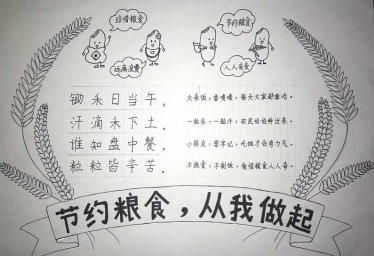 珍惜粮食
远离浪费
节约粮食
人人有责
锄禾日当午，
汗滴禾下土。
谁知盘中餐，
粒粒皆辛苦。
大米饭，香喷喷，每天大家都要吃。
一粒米，一粒汗，农民伯伯种出来。
小朋友，要牢记，吃饱才会有力气。
不挑食，不剩饭，爱惜粮食人人夸。
节约粮食，从我做起